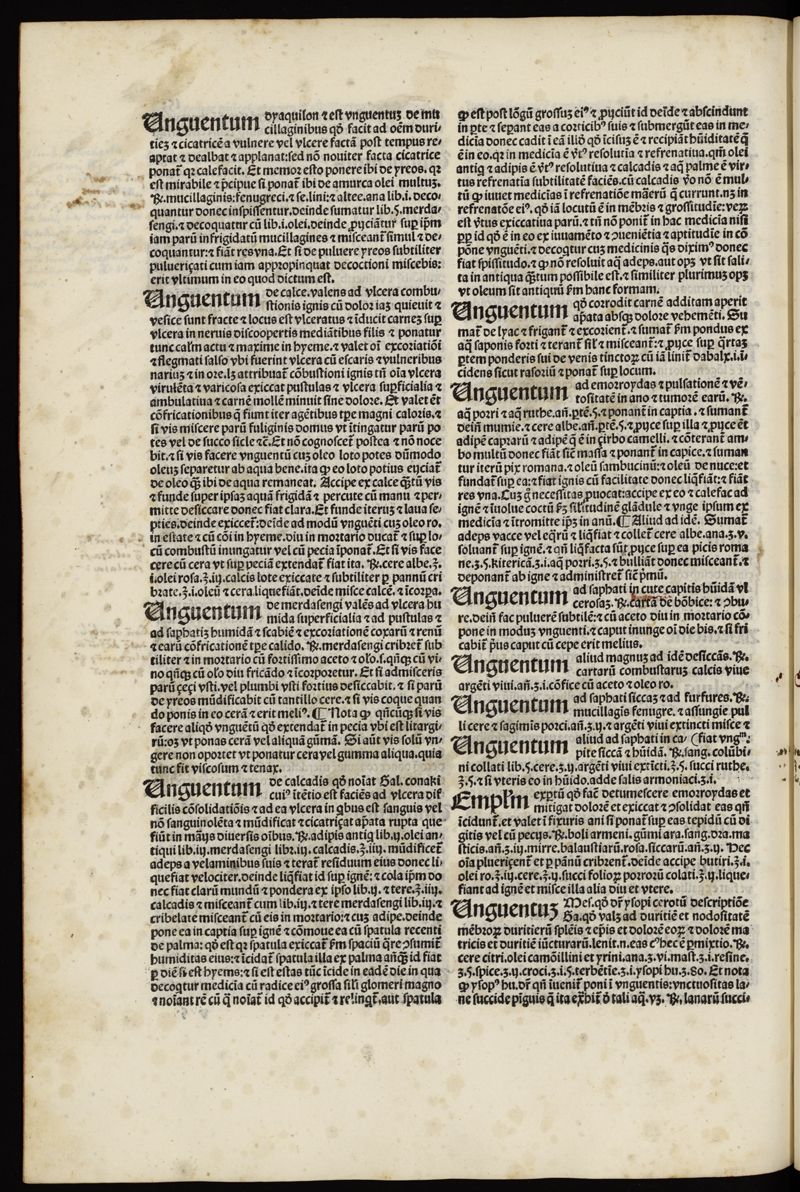 Unguentum dyaquilon ⁊ est vnguentuʒ de mu
cillaginibus qḋ facit ad oēm duri⸗
tieʒ ⁊ cicatricē a vulnere vel vlcere factā post tempus re⸗
aptat ⁊ dealbat ⁊ applanat: sed nō nouiter facta cicatrice
ponat̄ qꝛ calefacit. Et memor esto ponere ibi de yreos. qꝛ
est mirabile ⁊ p̄cipue si ponat̄ ibi de amurca olei multuʒ.
℞. mucillaginis: fenugreci. ⁊ se. lini: ⁊ altee. ana lib. i. deco⸗
quantur donec inspissentur. deinde sumatur lib. ʃ. merda⸗
sengi. ⁊ decoquatur cū lib. i. olei. deinde ꝓijciātur sup̄ ip̄m
iam parū infrigidatū mucillagines ⁊ misceant̄ simul ⁊ de⸗
coquantur: ⁊ fiāt res vna. Et si de puluere yreos subtiliter
pulueriçati cum iam appropinquat decoctioni miscebis:
erit vltimum in eo quod dictum est.
Unguentum de calce. valens ad vlcera combu⸗
stionis ignis cū dolor iaʒ quieuit ⁊
vesice sunt fracte ⁊ locus est vlceratus ⁊ īducit carneʒ sup̄
vlcera in neruis discoopertis mediātibus filis ⁊ ponatur
tunc calm̄ actu ⁊ maxime in hyeme. ⁊ valet oī excoriatiōi
⁊ flegmati salso vbi fuerint vlcera cū escaris ⁊ vulneribus
nariuʒ ⁊ in ore. lʒ attribuat̄ cōbustioni ignis tn̄ oīa vlcera
virulēta ⁊ varicosa exiccat pustulas ⁊ vlcera suꝑficialia ⁊
ambulatiua ⁊ carnē mollē minuit sine dolore. Et valet ēt
cōfricationibus q̄ fiunt iter agētibus tꝑe magni caloris. ⁊
si vis miscere parū fuliginis domus vt ītingatur parū po
tes vel de succo sicle ⁊c̄. Et nō cognoscet̄ postea ⁊ nō noce
bit. ⁊ si vis facere vnguentū cuʒ oleo loto potes dūmodo
oleuʒ separetur ab aqua bene. ita ꝙ eo loto potius eijciat̄
de oleo qʒ̄ ibi de aqua remaneat. Accipe ex calce qʒ̄tū vis
⁊ funde super ipsaʒ aquā frigidā ⁊ percute cū manu ⁊ per⸗
mitte desiccare donec fiat clara. Et funde iteruʒ ⁊ laua se⸗
pties. deinde exiccet̄: deīde ad modū vnguēti cuʒ oleo ro.
in estate ⁊ cū cōi in hyeme. diu in mortario ducat̄ ⁊ sup̄ lo⸗
cū combustū inungatur vel cū pecia īponat̄. Et si vis face
cere cū cera vt sup̄ peciaʒ extendat̄ fiat ita. ℞. cere albe. ℥.
i. olei rosa. ℥. iij. calcis lote exiccate ⁊ subtiliter ꝑ pannū cri
brate. ℥. i. oleū ⁊ cera. liquefiāt. deīde misce calcē. ⁊ īcorpa.
Unguentum de merdasengi valēs ad vlcera hu
mida superficialia ⁊ ad pustulas ⁊
ad saphatiʒ humidā ⁊ scabiē ⁊ excoriationē coxarū ⁊ renū
⁊ earū cōfricationē tꝑe calido. ℞. merdasengi cribret̄ sub
tiliter ⁊ in mortario cū fortissimo aceto ⁊ olo. s. qn̄qʒ cū vi⸗
no qn̄qʒ cū olo diu fricādo ⁊ īcorporetur. Et si admisceris
parū çeçi vsti. vel plumbi vsti fortius desiccabit. ⁊ si parū
de yreos mūdificabit cū tantillo cere. ⁊ si vis coque quan
do ponis in eo cerā ⁊ erit meliꝰ. ¶ Nota ꝙ qn̄cūqʒ si vis
facere aliqḋ vnguētū qḋ extendat̄ in pecia vbi est litargi⸗
rū: oʒ vt ponas cerā vel aliquā gūmā. Si aūt vis solū vn⸗
gere non oportet vt ponatur cera vel gumma aliqua. quia
tunc fit viscosum ⁊ tenax.
Unguentum de calcadis qḋ noīat Gal. conaki
cuiꝰ ītētio est faciēs ad vlcera dif
ficilis cōsolidatiōis ⁊ ad ea vlcera in qbus est sanguis vel
nō sanguinolēta ⁊ mūdificat ⁊ cicatriçat ap̄ata rupta que
fiūt in manijs diuersis oībus. ℞. adipis antiq lib. ij. olei an⸗
tiqui lib. iij. merdasengi libr. iij. calcadis. ℥. iiij. mūdificet̄
adeps a velaminibus suis ⁊ terat̄ residuum eius donec li⸗
quefiat velociter. deinde liq̄fiat id sup̄ ignē: ⁊ cola ip̄m do
nec fiat clarū mundū ⁊ pondera ex ipso lib. ij. ⁊ tere. ℥. iiij.
calcadis ⁊ misceant cum lib. iij. ⁊ tere merdasengi lib. iij. ⁊
cribelate misceant̄ cū eis in mortario: ⁊ cuʒ adipe. deinde
pone ea in captia sup̄ ignē ⁊ cōmoue ea cū spatula recenti
de palma: qḋ est qꝛ spatula exiccat̄ ẜm spaciū q̄re ꝯsumit̄
humiditas eius: ⁊ īcidat̄ spatula illa ex palma añqʒ̄ id fiat
ꝑ diē si est hyems: ⁊ si est estas tūc īcide in eadē die in qua
decoqtur medicīa cū radice eiꝰ grossa sil̄i glomeri magno
⁊ noīant rē cū q̄ noīat̄ id qḋ accipit̄ ⁊ relinqt̄. aut spatula
ꝙ est post lōgū grossuʒ eiꝰ ⁊ ꝓijciūt id deīde ⁊ abscindunt
in ꝑte ⁊ sepant eas a corticibꝰ suis ⁊ submergūt eas in me⸗
dicīa donec cadit ī eā iliō qḋ īcisuʒ ē ⁊ recipiāt hūiditatē q̄
ē in eo. qꝛ in medicīa ē vt̄ꝰ resolutīa ⁊ refrenatiua. qm̄ olei
antiq ⁊ adipis ē vt̄ꝰ resolutiua ⁊ calcadis ⁊ aq̄ palme ē vir⸗
tus refrenatīa subtilitatē faciēs. cū calcadis v̊o nō ē mul⸗
tū ꝙ iuuet medicīas ī refrenatiōe mārerū q̄ currunt. nʒ in
refrenatōe eiꝰ. qḋ iā locutū ē in mēbris ⁊ grossitudīe: veꝝ
est vt̄us exiccatiua parū. ⁊ tū nō ponit̄ in hac medicīa nisi
ꝓꝑ id qḋ ē in eo ex iuuamēto ⁊ ꝯueniētia ⁊ aptitudīe in cō
pōne vnguēti. ⁊ decoqtur cuʒ medicinis q̄s diximꝰ donec
fiat spissitudo. ⁊ ꝙ nō resoluit aq̄ adeps. aut opʒ vt sit sali⸗
ta in antiqua qʒ̄tum possibile est. ⁊ similiter plurimuʒ opʒ
vt oleum sit antiquū ẜm hanc formam.
Unguentum qḋ corrodit carnē additam aperit
ap̄ata absqʒ dolore vehemēti. Su
mat̄ de lyac ⁊ frigant̄ ⁊ excorient̄. ⁊ sumat̄ ẜm pondus ex
aq̄ saponis forti ⁊ terant̄ sil̄ ⁊ misceant̄: ⁊ ꝓijce sup̄ q̄rtaʒ
ꝑtem ponderis sui de venis tinctoꝝ cū iā linit̄ dabalx. i. ī⸗
cidens sicut rasoriū ⁊ ponat̄ sup̄ locum.
Unguentum ad emorroydas ⁊ pulsationē ⁊ vē⸗
tositatē in ano ⁊ tumorē earū. ℞.
aq̄ porri ⁊ aq̄ ruthe. an̄. ꝑtē. ʃ. ⁊ ponant̄ in captia. ⁊ sumant̄
deīn mumie. ⁊ cere albe. an̄. ꝑtē. ʃ. ⁊ ꝓijce sup̄ illa ⁊ ꝓijce ēt
adipē caprarū ⁊ adipē q̄ ē in çirbo camelli. ⁊ cōterant̄ am⸗
bo multū donec fiāt sic̄ massa ⁊ ponant̄ in capice. ⁊ suman
tur iterū pix romana. ⁊ oleū sambucinū: ⁊ oleū de nuce: et
fundat̄ sup̄ ea: ⁊ fiat ignis cū facilitate donec liq̄fiāt: ⁊ fiāt
res vna. Cuʒ g̊ necessitas ꝓuocat: accipe ex eo ⁊ calefac ad
ignē ⁊ īuolue coctū ẜʒ sil̄itudinē glādule ⁊ vnge ipsum ex
medicīa ⁊ ītromitte ip̄ʒ in anū. ¶ Aliud ad idē. Sumat̄
adeps vacce vel eqrū ⁊ liq̄fiat ⁊ collet̄ cere albe. ana. ℥. v.
soluant̄ sup̄ ignē. ⁊ qn̄ liq̄facta sūt ꝓijce sup̄ ea picis roma
ne. ℥. ʃ. kitericā. ℥. i. aq̄ porri. ℥. ʃ. ⁊ bulliāt donec misceant̄. ⁊
deponant̄ ab igne ⁊ administret̄ sic̄ p̄mū.
Unguentum ad saphati in cute capitis hūidā vl
cerosaʒ. ℞. carta de bōbice: ⁊ ꝯbu⸗
re. deīn̄ fac puluerē subtilē: ⁊ cū aceto diu in mortario cō⸗
pone in moduʒ vnguenti. ⁊ caput inunge oī die bis. ⁊ si fri
cabit̄ pus caput cū cepe erit melius.
Unguentum aliud magnuʒ ad idē desiccās. ℞.
cartarū combustaruʒ calcis viue
argēti viui. an̄. ℥. i. cōfice cū aceto ⁊ oleo ro.
Unguentum ad saphati siccaʒ ⁊ ad furfures. ℞.
mucillagis fenugre. ⁊ assungie pul
li cere ⁊ sagimis porci. an̄. ℥. ij. ⁊ argēti viui extincti misce ⁊
Unguentum aliud ad saphati in ca⸗ (fiat vngm̄.
pite siccā ⁊ hūidā. ℞. sang. colūbi⸗
ni collati lib. ʃ. cere. ℥. ij. argēti viui extīcti. ℥. ʃ. succi ruthe.
℥. ʃ. ⁊ si vteris eo in hūido. adde salis armoniaci. ℥. i.
Emplm̄ expt̄ū qḋ fac̄ detumescere emorroydas et
mitigat dolorē et exiccat ⁊ ꝯsolidat eas qn̄
īcidunt̄. et valet ī fixuris ani si ponat̄ sup̄ eas tepidū cū di
gitis vel cū pecijs. ℞. boli armeni. gūmi ara. sang. dra. ma
sticis. an̄. ℥. iij. mirre. balaustiarū. rosa. siccarū. an̄. ℥. ij. Hec
oīa plueriçent̄ et ꝑ pānū cribrent̄. deīde accipe butiri. ℥. i.
olei ro. ℥. iij. cere. ℥. ij. succi folioꝝ porroꝝ colati. ℥. ij. lique⸗
fiant ad ignē et misce illa alia diu et vtere.
Unguentuʒ Mes. qḋ dr̄ ysopi cerotū descriptiōe
Ga. qḋ valʒ ad duritiē et nodositatē
mēbroꝝ duritierū splēis ⁊ epīs et dolorē eoꝝ ⁊ dolorē ma
tricis et duritiē iūcturarū. lenit. n. eas ⁊ hec ē ꝑmixtio. ℞.
cere citri. olei camōillini et yrini. ana. ℥. vi. mast. ℥. i. resine.
℥. ʃ. spice. ℥. ij. croci. ℥. i. ʃ. terbētīe. ℥. i. ysopi hu. ℥. 80. Et nota
ꝙ ysopꝰ hu. dr̄ qn̄ īuenit̄ poni ī vnguentis: vnctuositas la⸗
ne succide pīguis q̄ ita ex̄hit̄ ō tali aq̄. vʒ. ℞. lanarū succi⸗